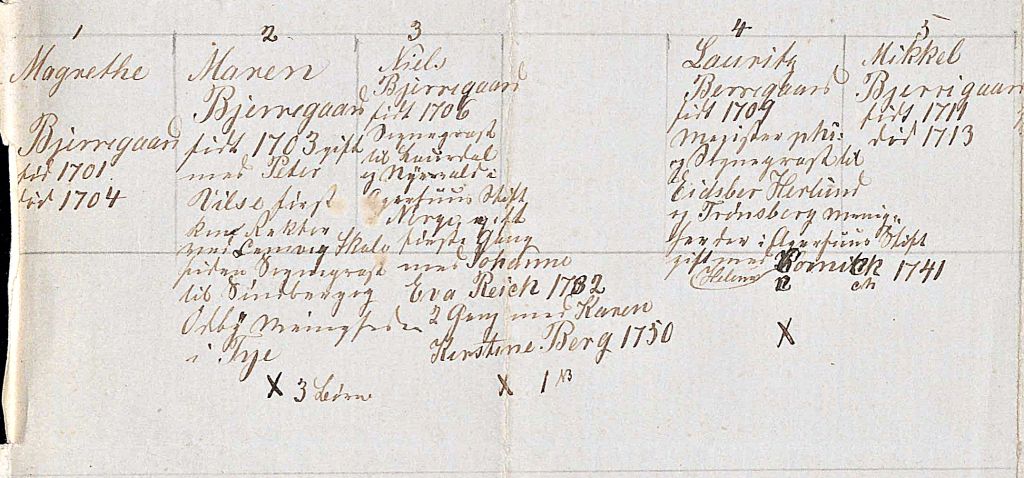 1
Magrethe
Bjerregaard
fød 1701
død 1704
2
Maren
Bjerregaard
født 1703 gift
med Peter
Vilse først
Rektor
ved Lemvig Skole
siden Sognepræst
til Sindberg og
Odby Menigheder
i Thye
X 3 Børn
3
Niels
Bjerregaard
født 1706
Sognepræst
til
og i
Agerhuus Stift
Norge gift
første Gang
med Johanne
Eva Reich 1732
2 Gang med Karen
Kirstine Berg 1750
X 1 NB
4
Lauritz
Berregaard
født 1709
Magister phi:
og Sognepræst til
Eidsber Herlund
og Trønsberg Menig-
heder i Agerhuus Stift
gift med Kornick 1741
(Helene) n ch
X
5
Mikkel
Bjerregaard
født 1711
død 1713